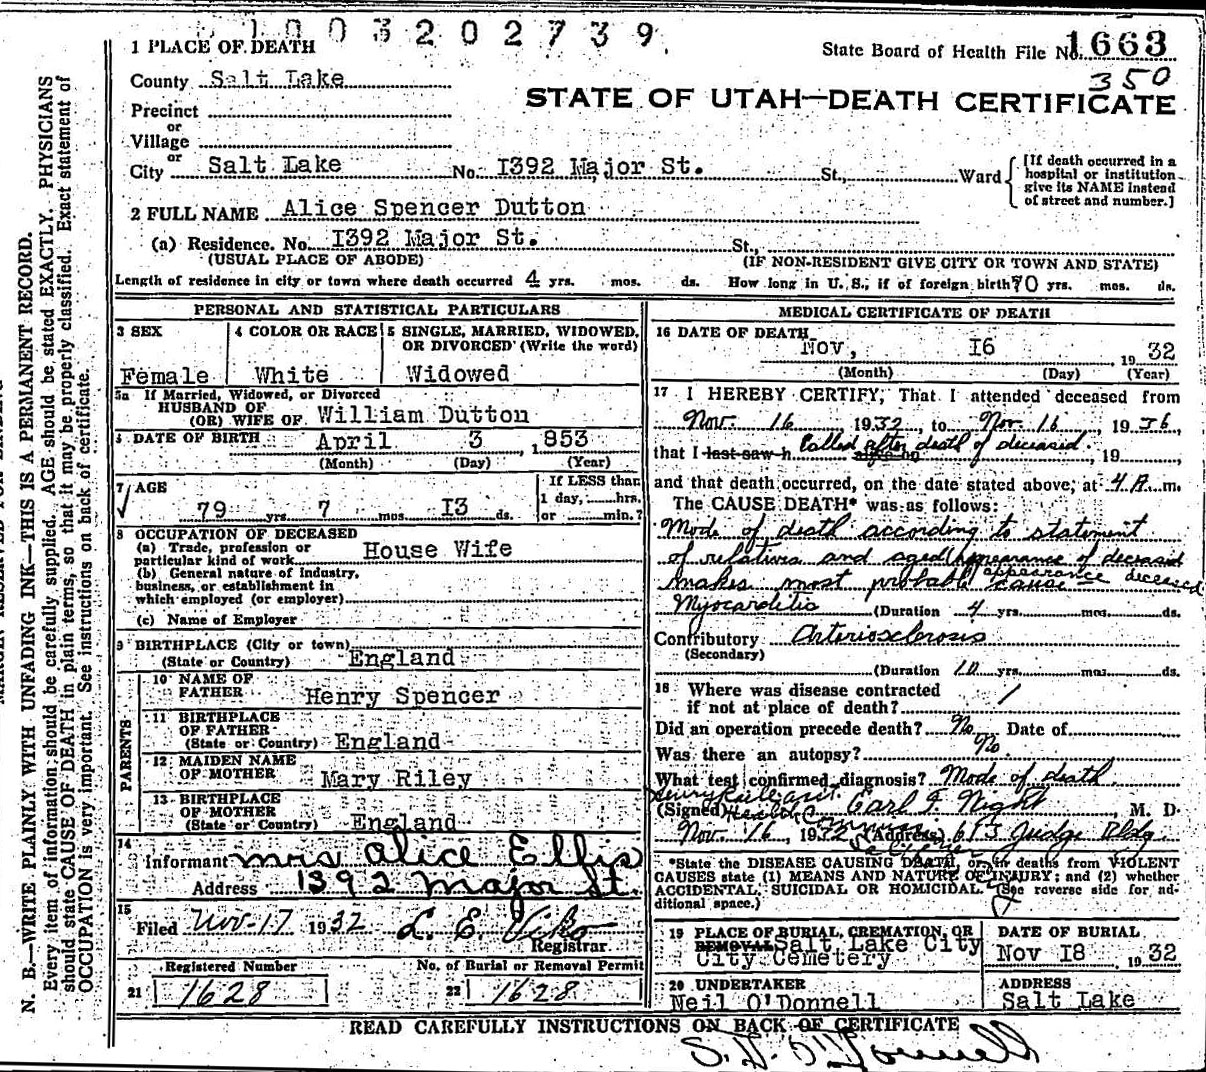 1003202739
1 PLACE OF DEATH
State Board of Health File No. 1663
350
County Salt Lake
STATE OF UTAH—DEATH CERTIFICATE
Precinct
or
Village
or
City Salt Lake No. I392 Major St. St., Ward
[If death occurred in a hospital or institution give its NAME instead of street and number.]
2 FULL NAME Alice Spencer Dutton
(a) Residence. No. I392 Major St. St.,
(USUAL PLACE OF ABODE) (IF NON-RESIDENT GIVE CITY OR TOWN AND STATE)
Length of residence in city or town where death occurred 4 yrs. mos. ds. How long in U. S., if of foreign birth 70 yrs. mos. ds.
PERSONAL AND STATISTICAL PARTICULARS
3 SEX
Female
4 COLOR OR RACE
White
5 SINGLE, MARRIED, WIDOWED, OR DIVORCED (Write the word)
Widowed
5a If Married, Widowed, or Divorced
HUSBAND OF
(OR) WIFE OF William Dutton
6 DATE OF BIRTH April 3, 1853
(Month) (Day) (Year)
7 AGE
79 yrs 7 mos I3 ds.
If LESS than
1 day, hrs.
or min.?
8 OCCUPATION OF DECEASED
(a) Trade, profession or
particular kind of work House Wife
(b) General nature of industry,
business, or establishment in
which employed (or employer)
(c) Name of Employer
9 BIRTHPLACE (City or town)
(State or Country) England
PARENTS
10 NAME OF
FATHER Henry Spencer
11 BIRTHPLACE
OF FATHER
(State or Country) England
12 MAIDEN NAME
OF MOTHER Mary Riley
13 BIRTHPLACE
OF MOTHER
(State or Country) England
14
Informant Mrs Alice Ellis
Address 1392 Major St.
15
Filed Nov-17 1932 L. E. Viko
Registrar
Registered Number
21 1628
No. of Burial or Removal Permit
22 1628
MEDICAL CERTIFICATE OF DEATH
16 DATE OF DEATH
Nov, I6 1932
(Month) (Day) (Year)
17 I HEREBY CERTIFY, That I attended deceased from
Nov. 16 1932, to Nov. 16, 1936,
that I last saw h Called after death of deceased, 19
and that death occurred, on the date stated above, at 4 A. m.
The CAUSE DEATH* was as follows:
Mode of death according to statement
of relatives and aged appearance of deceased
appearance deceased
makes most probable cause
Myocarditis (Duration 4 yrs. mos. ds.
Contributory Arteriosclerosis
(Secondary)
(Duration 10 yrs. mos. ds.
18 Where was disease contracted
if not at place of death?
Did an operation precede death? No Date of
Was there an autopsy? No.
What test confirmed diagnosis? Mode of death.
(Signed) Earl F. Night M. D.
Nov. 16, 1932 (Address) 613 Judge Bldg.
*State the DISEASE CAUSING DEATH, or, in deaths from VIOLENT
CAUSES state (1) MEANS AND NATURE OF INJURY; and (2) whether
ACCIDENTAL, SUICIDAL OR HOMICIDAL. (See reverse side for ad-
ditional space.)
19 PLACE OF BURIAL, CREMATION, OR
REMOVAL Salt Lake City
City Cemetery
DATE OF BURIAL
Nov I8 1932
20 UNDERTAKER
Neil O'Donnell
ADDRESS
Salt Lake
READ CAREFULLY INSTRUCTIONS ON BACK OF CERTIFICATE
S. D. O'Donnell
N. B.—WRITE PLAINLY WITH UNFADING INK—THIS IS A PERMANENT RECORD.
Every item of information should be carefully supplied. AGE should be stated EXACTLY. PHYSICIANS
should state CAUSE OF DEATH in plain terms, so that it may be properly classified. Exact statement of
OCCUPATION is very important. See instructions on back of certificate.